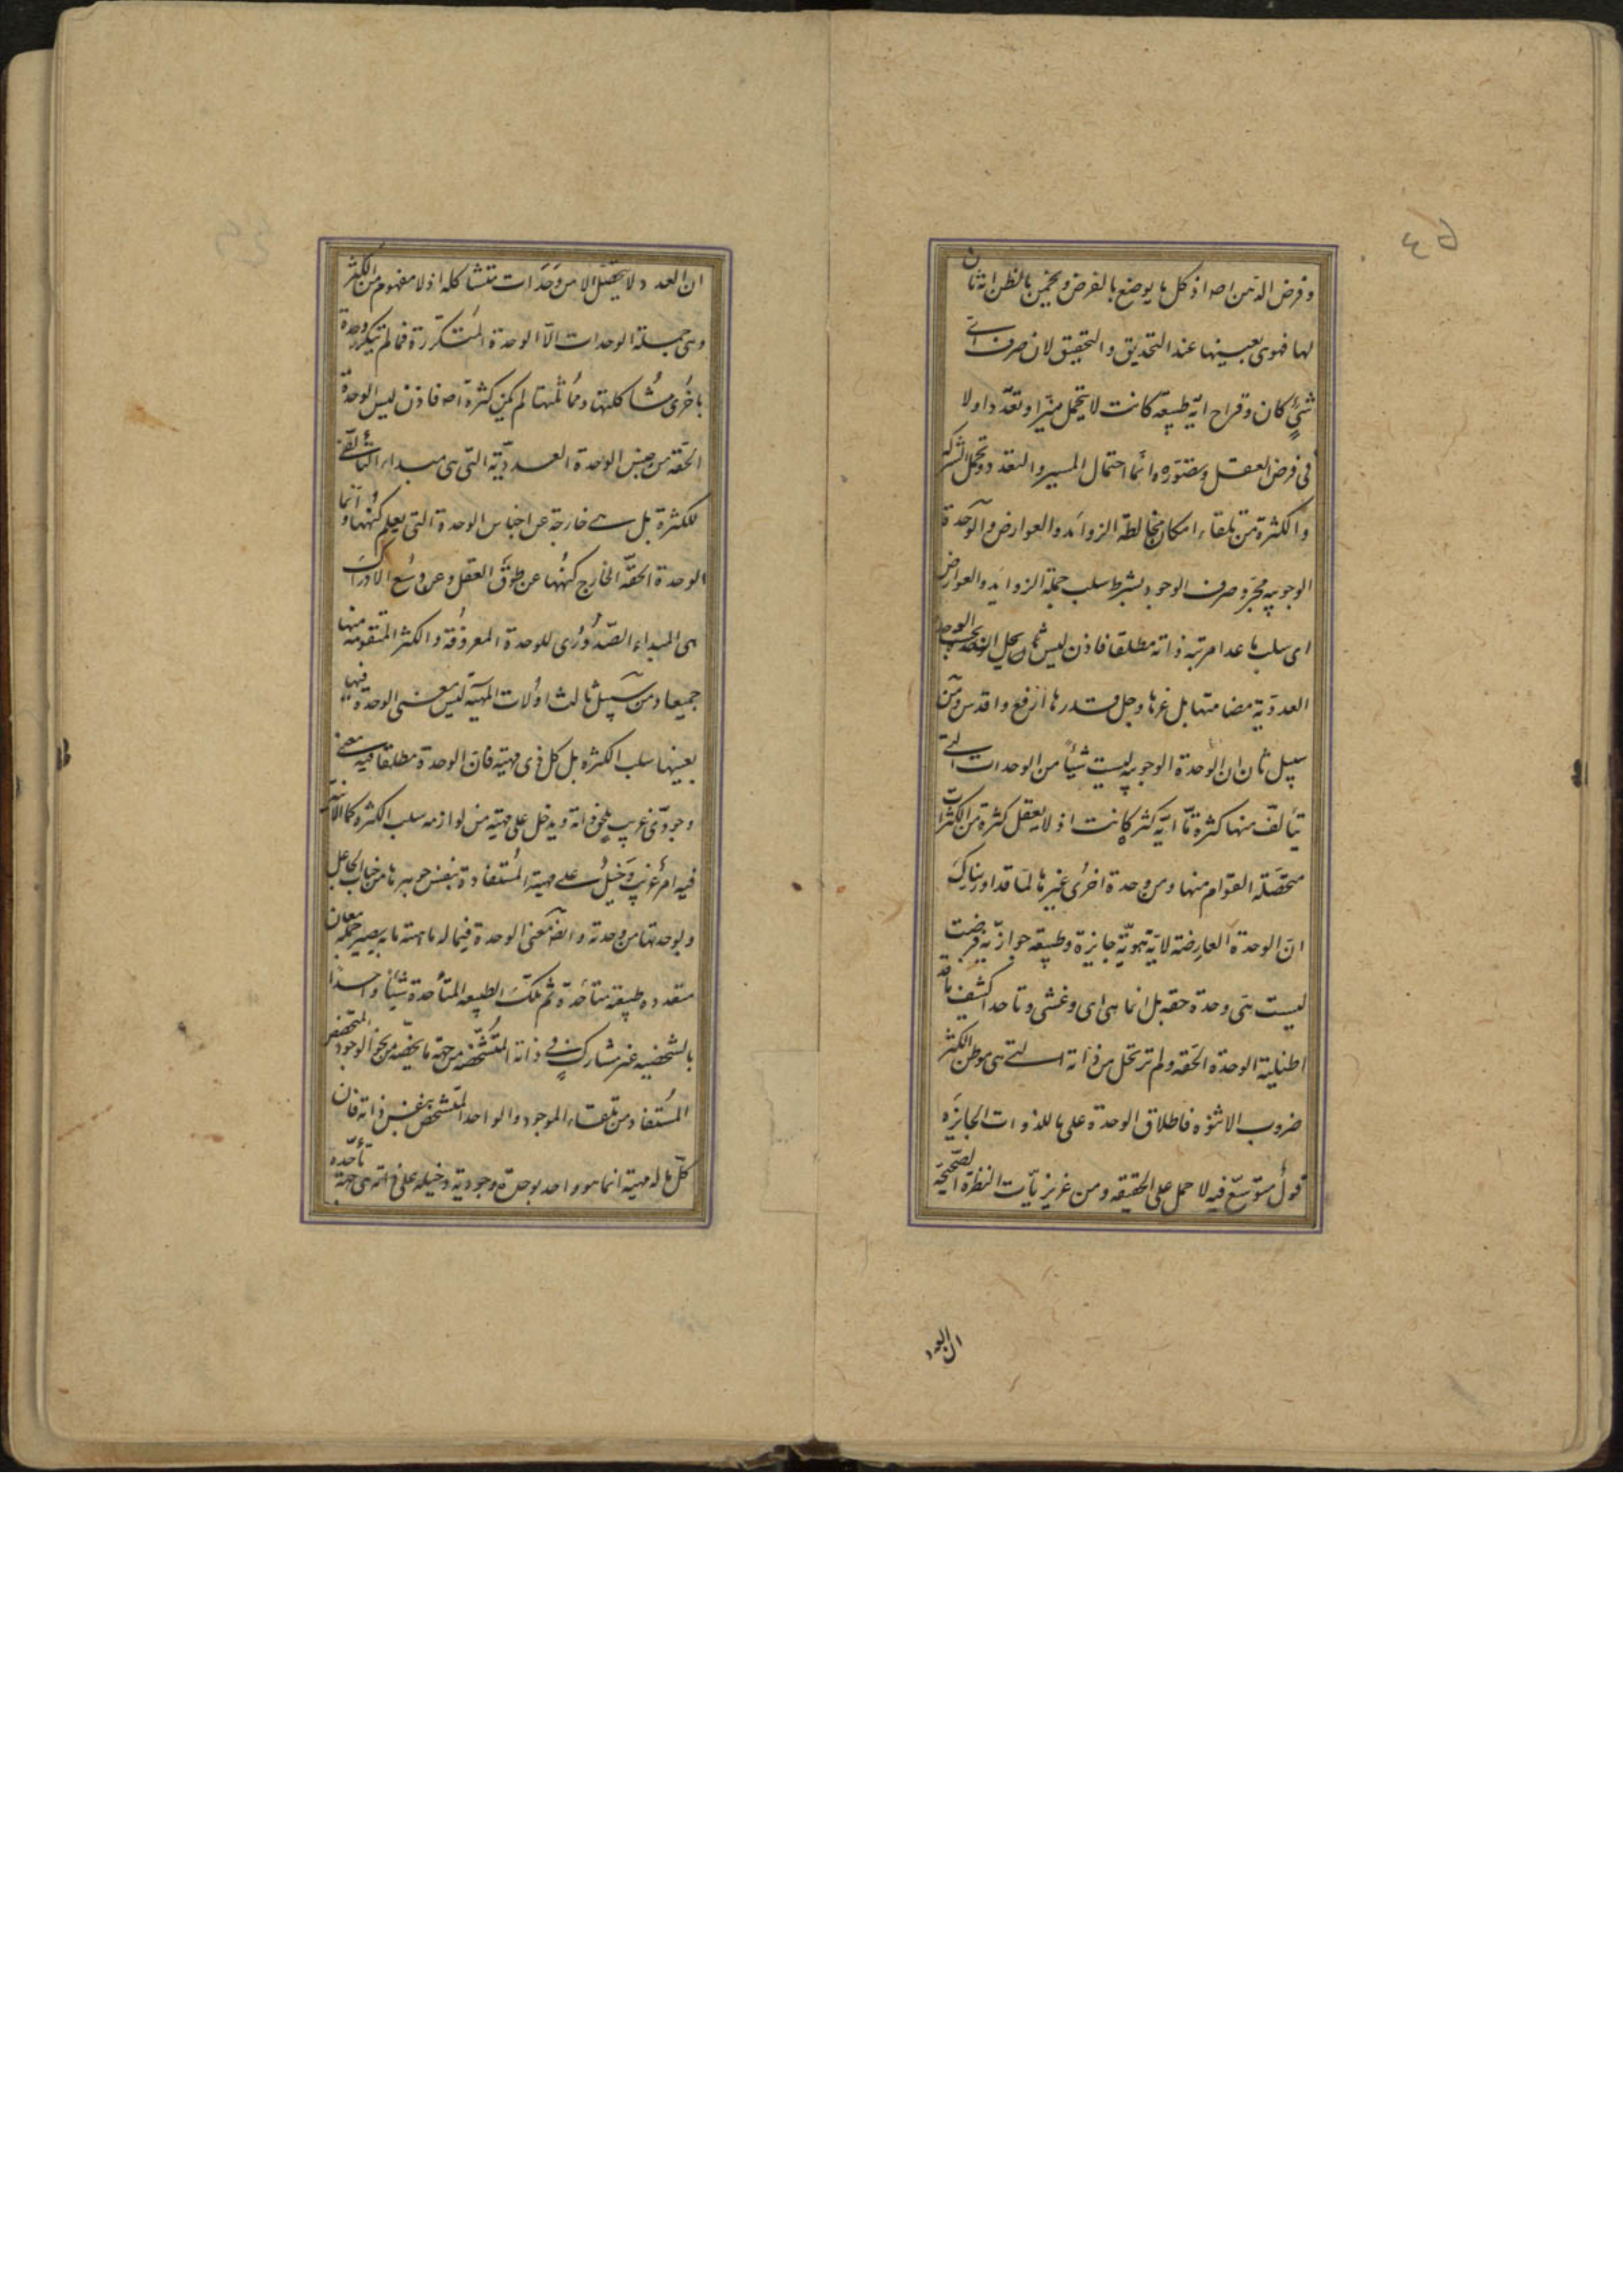 ٤٥
وفرض الذهن اصه اذ كل ما يوضع بالفرض ويخمن بالظن انه ثان
لها فهو هى بعينها عند التحديق والتحقيق لان صرف اى
شئ كان وقراح اية طبيعة كانت لا يحتمل ميزا وتعددا ولا
فى فرض العقل وتصوره وانما احتمال الميز والتعدد وتحمل الشركة
والكثرة من تلقاء امكان مخالطة الزوائد والعوارض والوحدة
الوجوبيه مجرد صرف الوجود بشرط سلب جملة الزوايد والعوارض
اى سلب ما عدا مرتبة ذاته مطلقا فاذن ليس يحل الوحدة
العددية مضامتها بل عزها وجل قدرها ارفع واقدس ومن
سبيل ثان ان الوحدة الوجوبيه ليست شيئا من الوحدات التى
يتألف منها كثرة ما اية كثرة كانت اذ لا يعقل كثرة من الكثرات
متحصلة القوام منها ومن وحدة اخرى غيرها لما قد اوريناك
ان الوحدة العارضة لاية هوية جايزة وطبيعة جوازية فرضت
ليست هى وحدة حقه بل انما هى اى وغشى وتاحدا كشف ما قد
اظليته الوحدة الحقه ولم ترتحل من ذاته التى هى موطن الكثرة
ضروب الاثنوه فاطلاق الوحدة على ما للذوات الجايزه
قول متوسع فيه لا حمل على الحقيقه ومن غريزيات النظرة الصحيحة
ان العدد
ان العدد لا يتحصل الا من وحدات متشاكله اذ لا مفهوم من الكثرة
وهى جملة الوحدات الا الوحدة المتكررة فما لم يتكرر وحدة
باخرى مشاكلتها ومماثلتها لم يكن كثرة اصه فاذن ليس الوحدة
الحقه من جنس الوحدة العددية التى هى مبداء التألفى
للكثرة بل هى خارجة عن اجناس الوحدة التى يعلم كنهها وانما
الوحدة الحقه الخارج كنهها عن طوق العقل وعن وسع الادراك
هى المبداء الصدورى للوحدة المعروفة والكثرة المتقومة منها
جميعا ومن سبيل ثالث اولات المهية ليس معنى الوحدة فيها
بعينها سلب الكثره بل كل ذى مهية فان الوحدة مطلقا فيه معنى
وجودى غريب يلحق ذاته ويدخل على مهيته من لوازمه سلب الكثره كما الانية
فيه امر غريب دخيل على مهية المستفادة بنفس جوهرها من جناب الجاعل
وبوحدتها من وحدته وايضا معنى الوحدة فيما له ماهية ما به يصير جملة معان
متعدده طبيعة متأحدة ثم تلك الطبيعه المتأحدة شيئا واحدا
بالشخصيه غير مشارك فى ذاته المتشخصه من جهة ما يخصه من نحو الوجود المتخصص
المستفاد من تلقاء الموجود والواحد المتشخص بنفس ذاته فان
كل ما له مهية انما هو واحد بوحدة وجودية دخيله على ذاته هى جهة تأحده